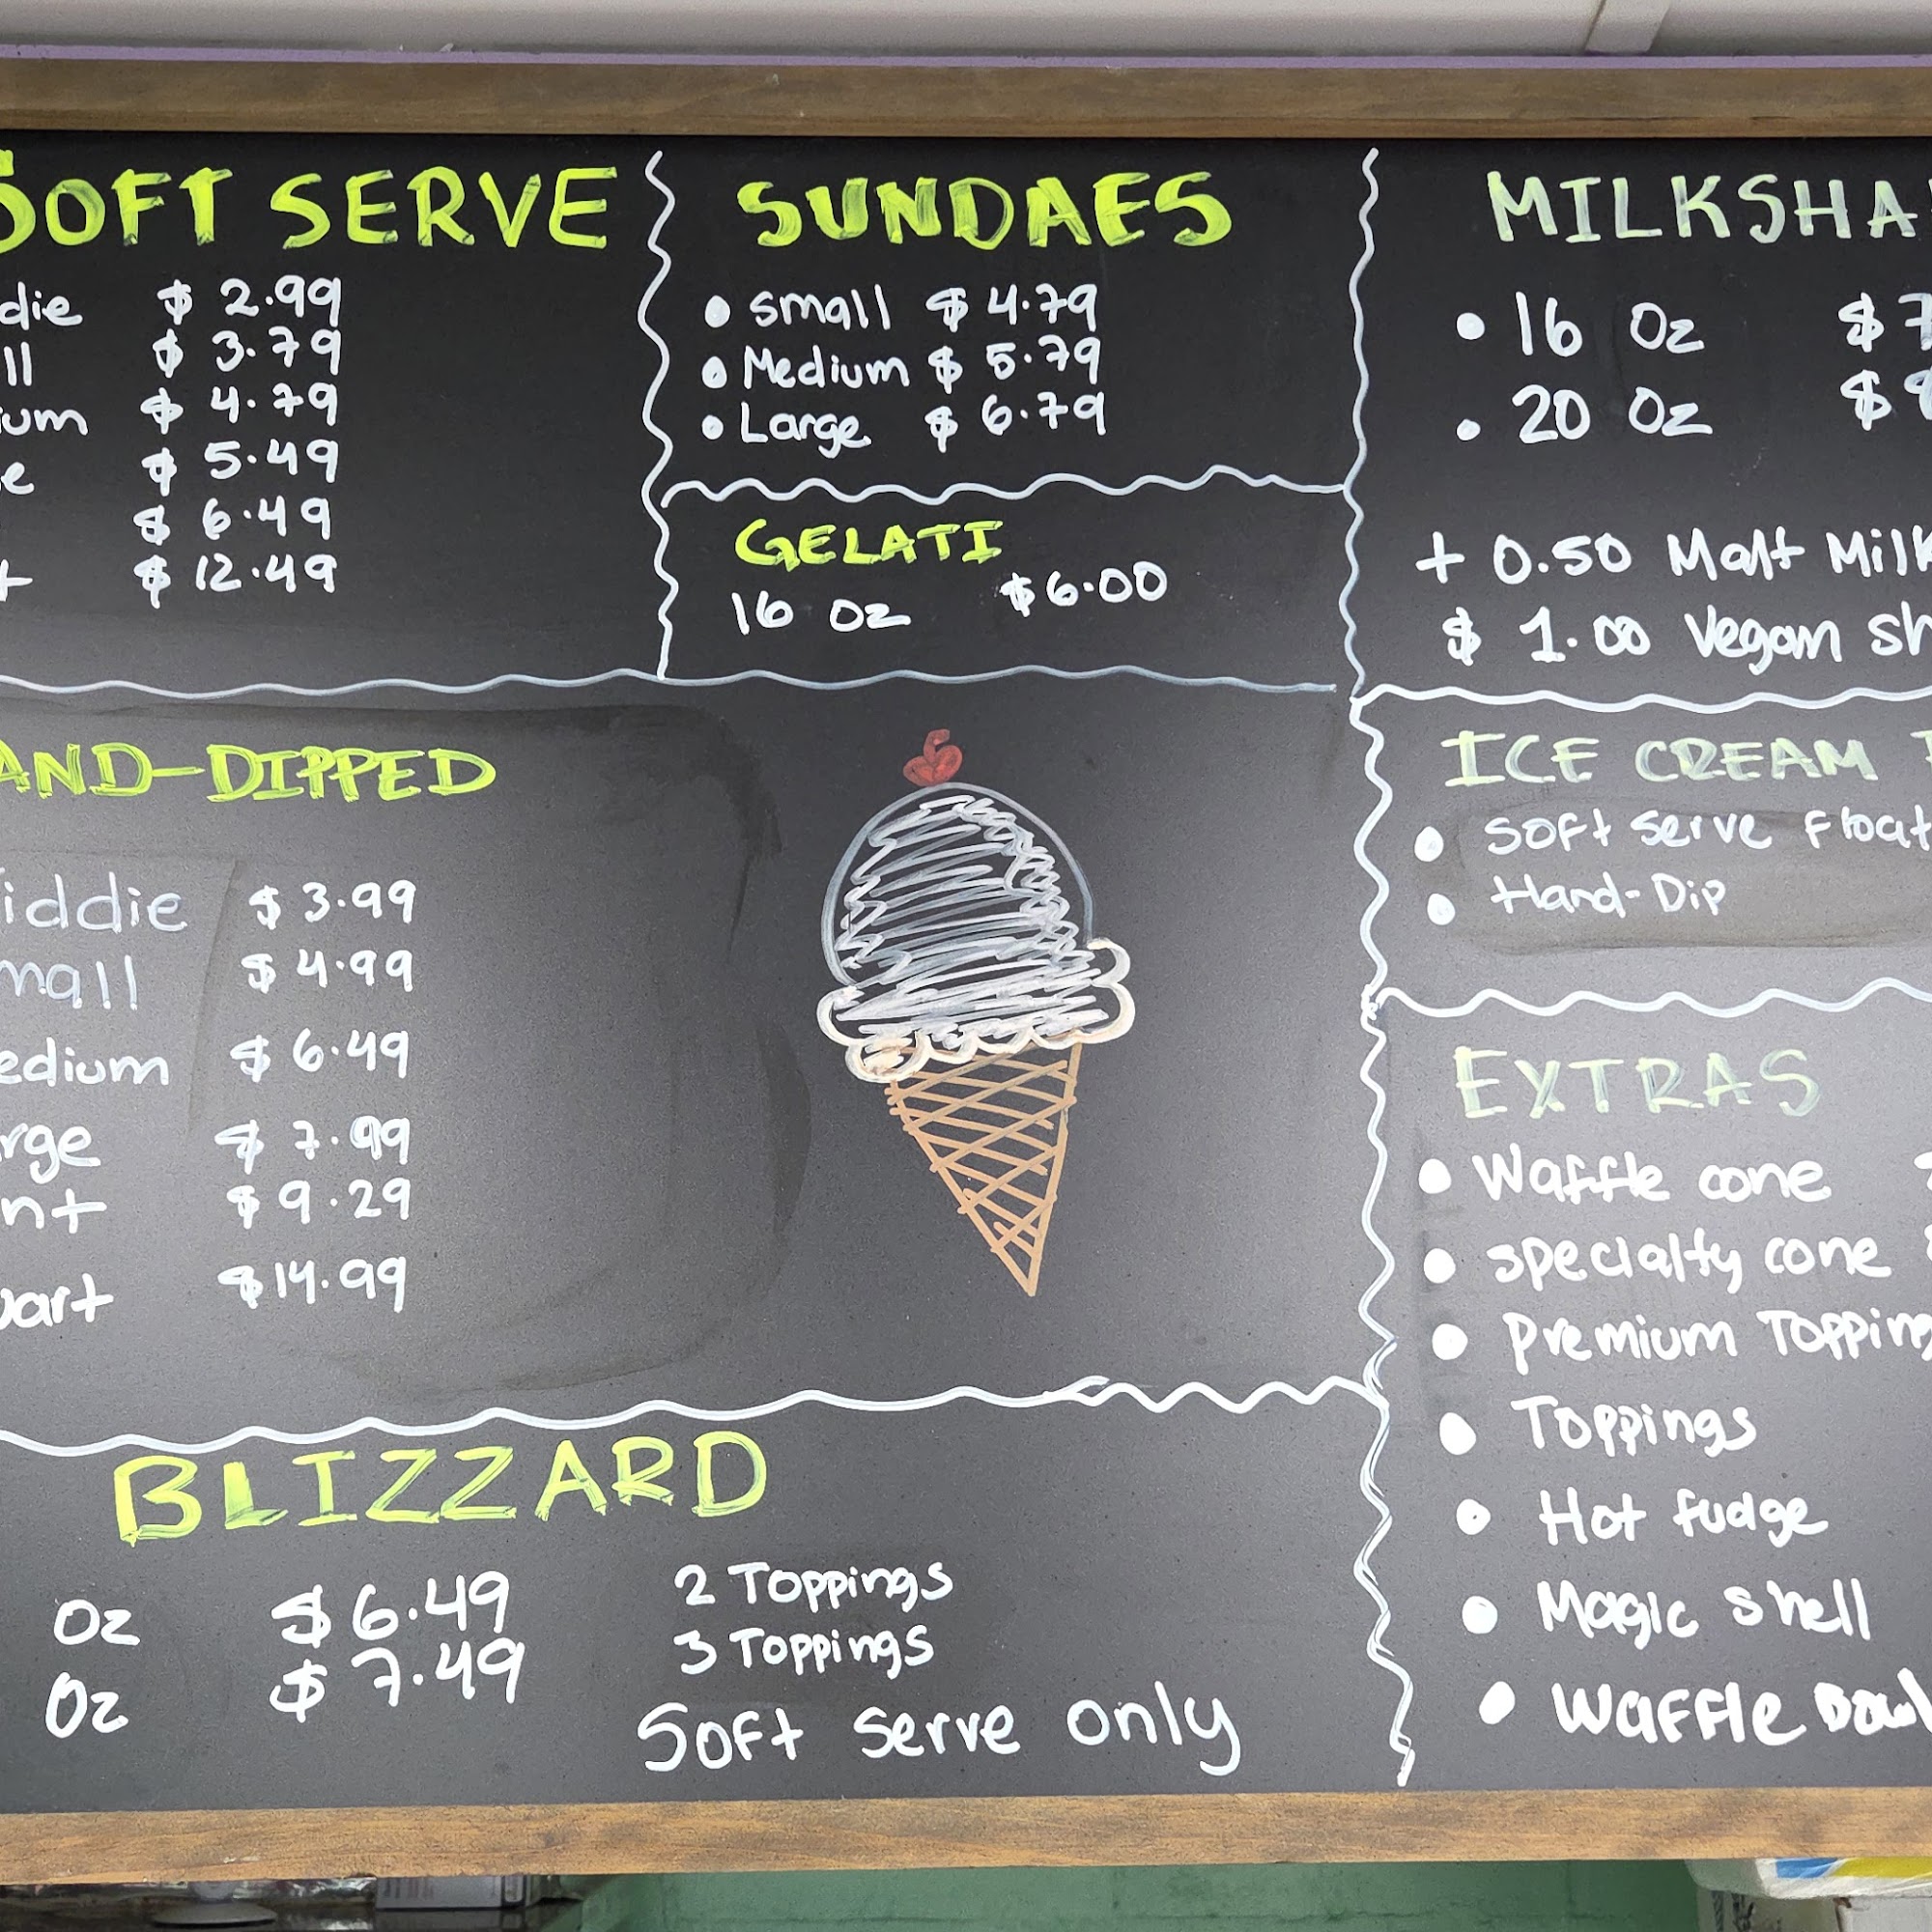 SOFT SERVE
die $ 2.99
ll $ 3.79
ium $ 4.79
e $ 5.49
$ 6.49
t $ 12.49
SUNDAES
• small $ 4.79
• Medium $ 5.79
• Large $ 6.79
GELATI
16 Oz $6.00
MILKSHA
• 16 Oz $7
• 20 Oz $
+ 0.50 Malt Milk
$ 1.00 Vegan Sh
AND-DIPPED
iddie $ 3.99
mall $ 4.99
edium $ 6.49
rge $ 7.99
nt $ 9.29
uart $14.99
ICE CREAM
• Soft Serve Float
• Hand-Dip
EXTRAS
• Waffle cone
• specialty cone
• Premium Topping
• Toppings
• Hot fudge
• Magic shell
• Waffle Bowl
BLIZZARD
Oz $ 6.49 2 Toppings
Oz $ 7.49 3 Toppings
Soft Serve only